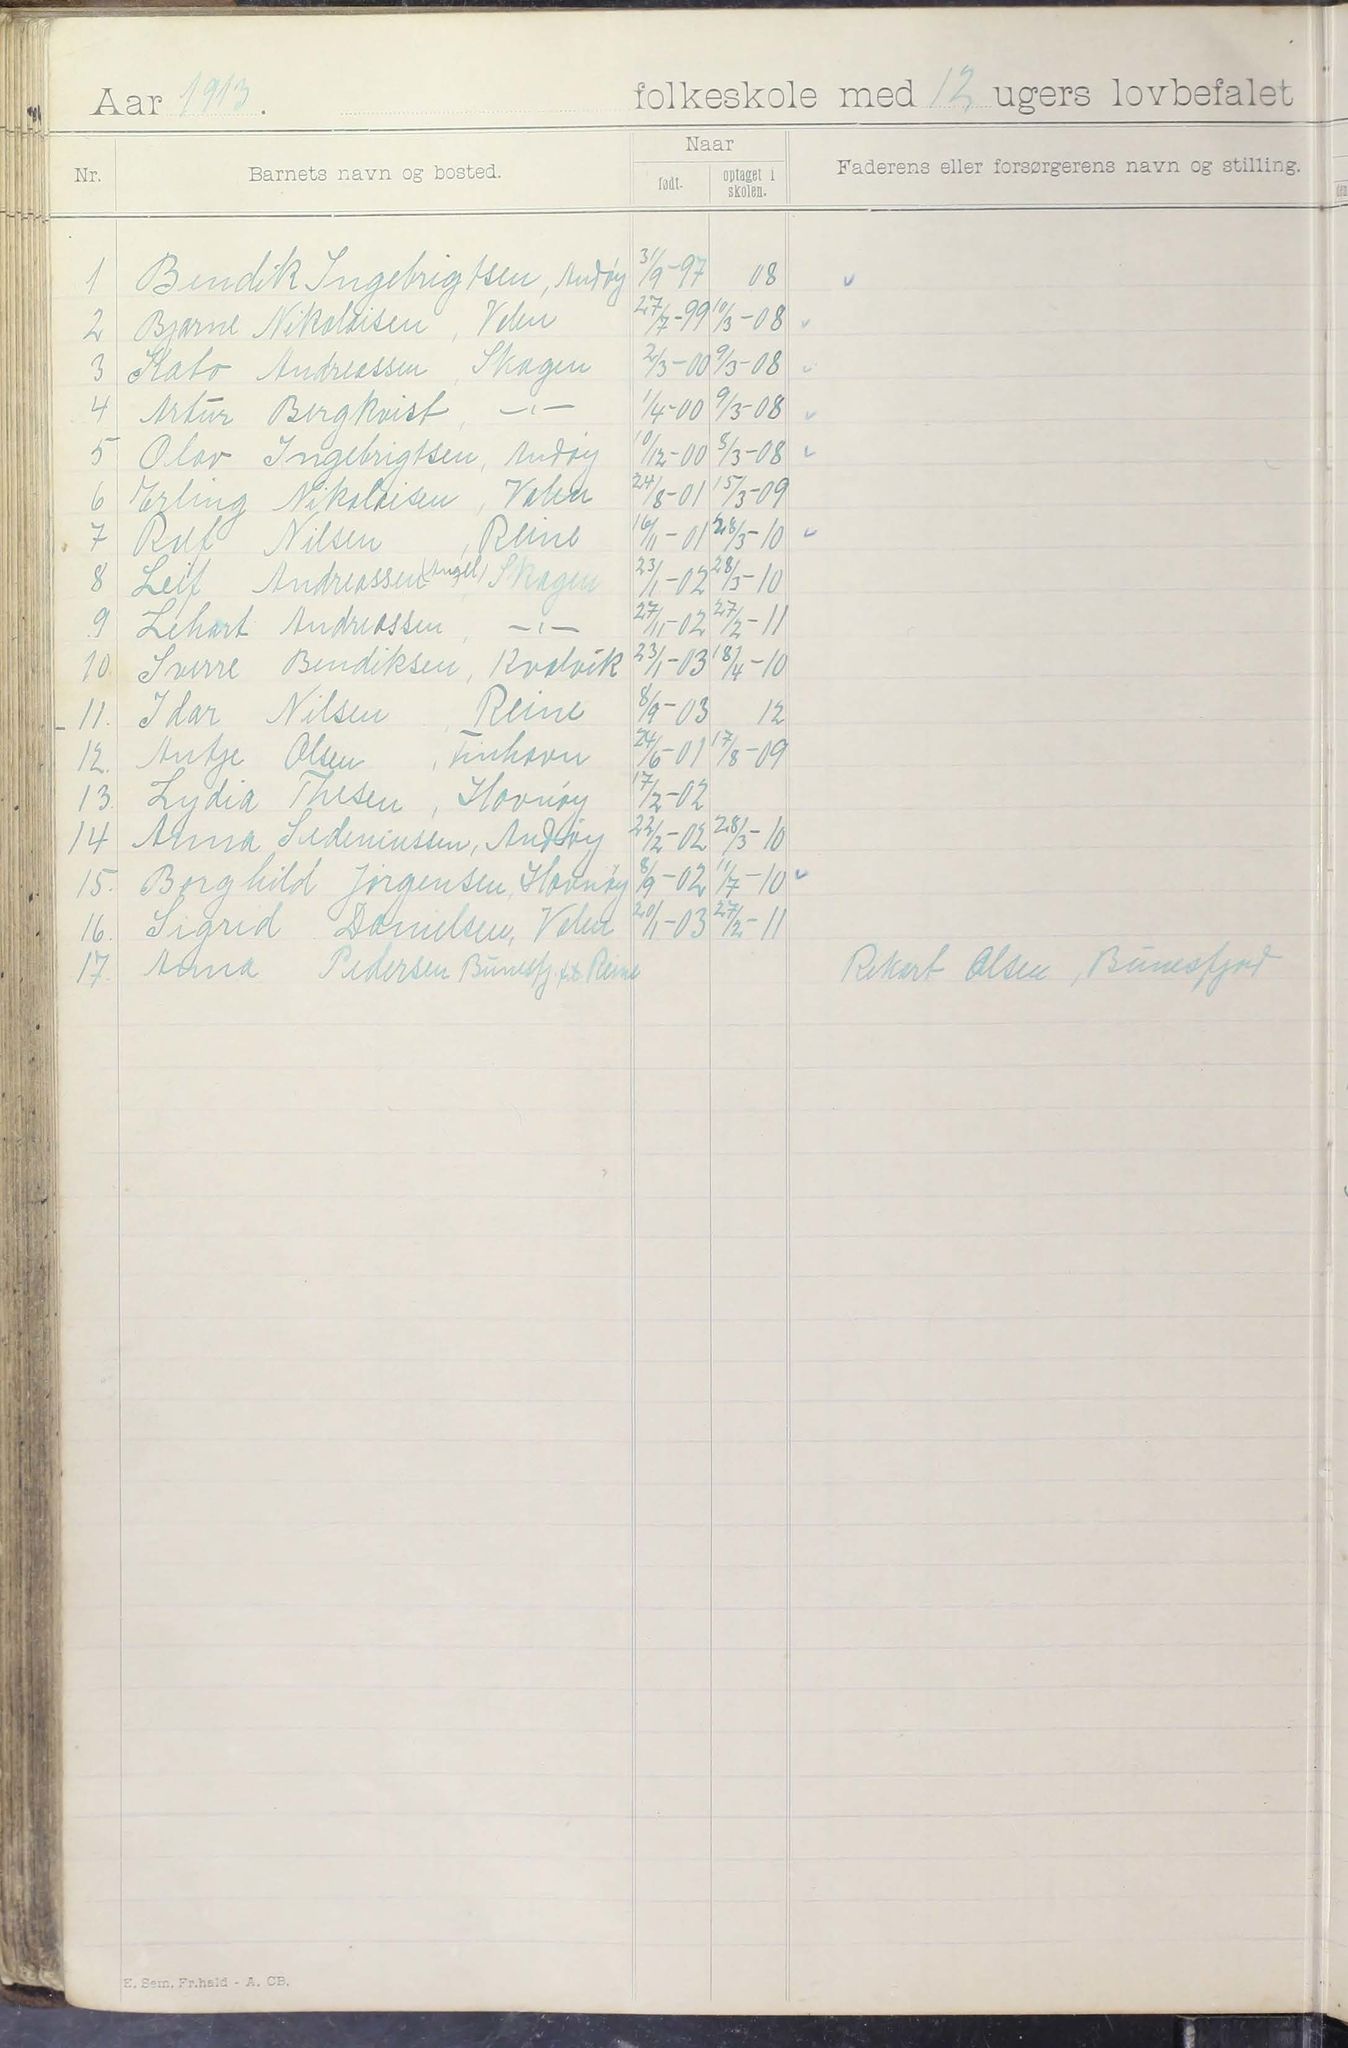 Aar 1913. folkeskole med 12 ugers lovbefalet
Nr. Barnets navn og bosted. Naar Faderens eller forsørgerens navn og stilling.
født. optaget i skolen.
1 Bendik Ingebrigtsen, Andøy 31/9-97 08
2 Bjarne Nikolaisen, Valen 27/7-99 10/3-08
3 Kato Andreassen, Skagen 2/3-00 9/3-08
4 Artur Bergkvist, -"- 1/4-00 9/3-08
5 Olav Ingebrigtsen, Andøy 10/12-00 8/3-08
6 Erling Nikolaisen, Valen 24/8-01 15/3-09
7 Rolf Nilsen, Reine 16/11-01 28/3-10
8 Leif Andreassen (Angel), Skagen 23/1-02 28/3-10
9 Lehart Andreassen, -"- 27/11-02 27/2-11
10. Sverre Bendiksen, Kvalvik 23/1-03 18/4-10
11. Idar Nilsen, Reine 8/9-03 12
12. Antje Olsen, Tinhavn 24/6-01 17/8-09
13. Lydia Thesen, Havnøy 17/2-02
14 Anna Sedeniussen, Andøy 22/2-02 28/3-10
15. Borghild Jørgensen, Havnøy 8/9-02 11/7-10
16. Sigrid Danielsen, Valen 20/1-03 27/2-11
17. Anna Pedersen Bunesfj. Reine Rikart Olsen, Bunesfjord
E. Sem. Fr.hald - A. CB.